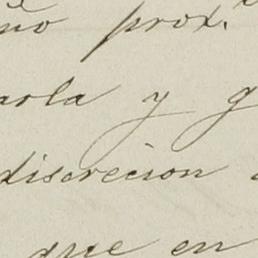 ño prox.
arla y g
discrecion
que en